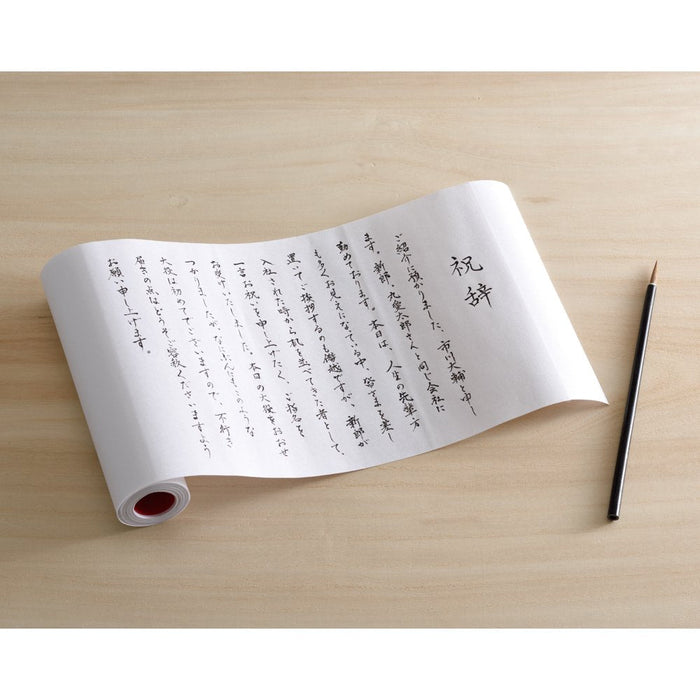 祝辞
ご紹介に預かりました、市川大輔と申し
ます。新郎、九愛太郎さんと同じ会社に
勤めております。本日は、人生の先輩方
も多くお見えになている中、皆さまを差し
置いてご挨拶するのも僭越ですが、新郎が
入社された時から机を並べてきた者として、
一言お祝いを申し上げたく、ご指名を
お受けいたしました。本日の大役をおおせ
つかりましたが、なにぶんにもこのような
大役は初めてでございますので、不行き
届きの点はどうぞご容赦くださいますよう
お願い申し上げます。